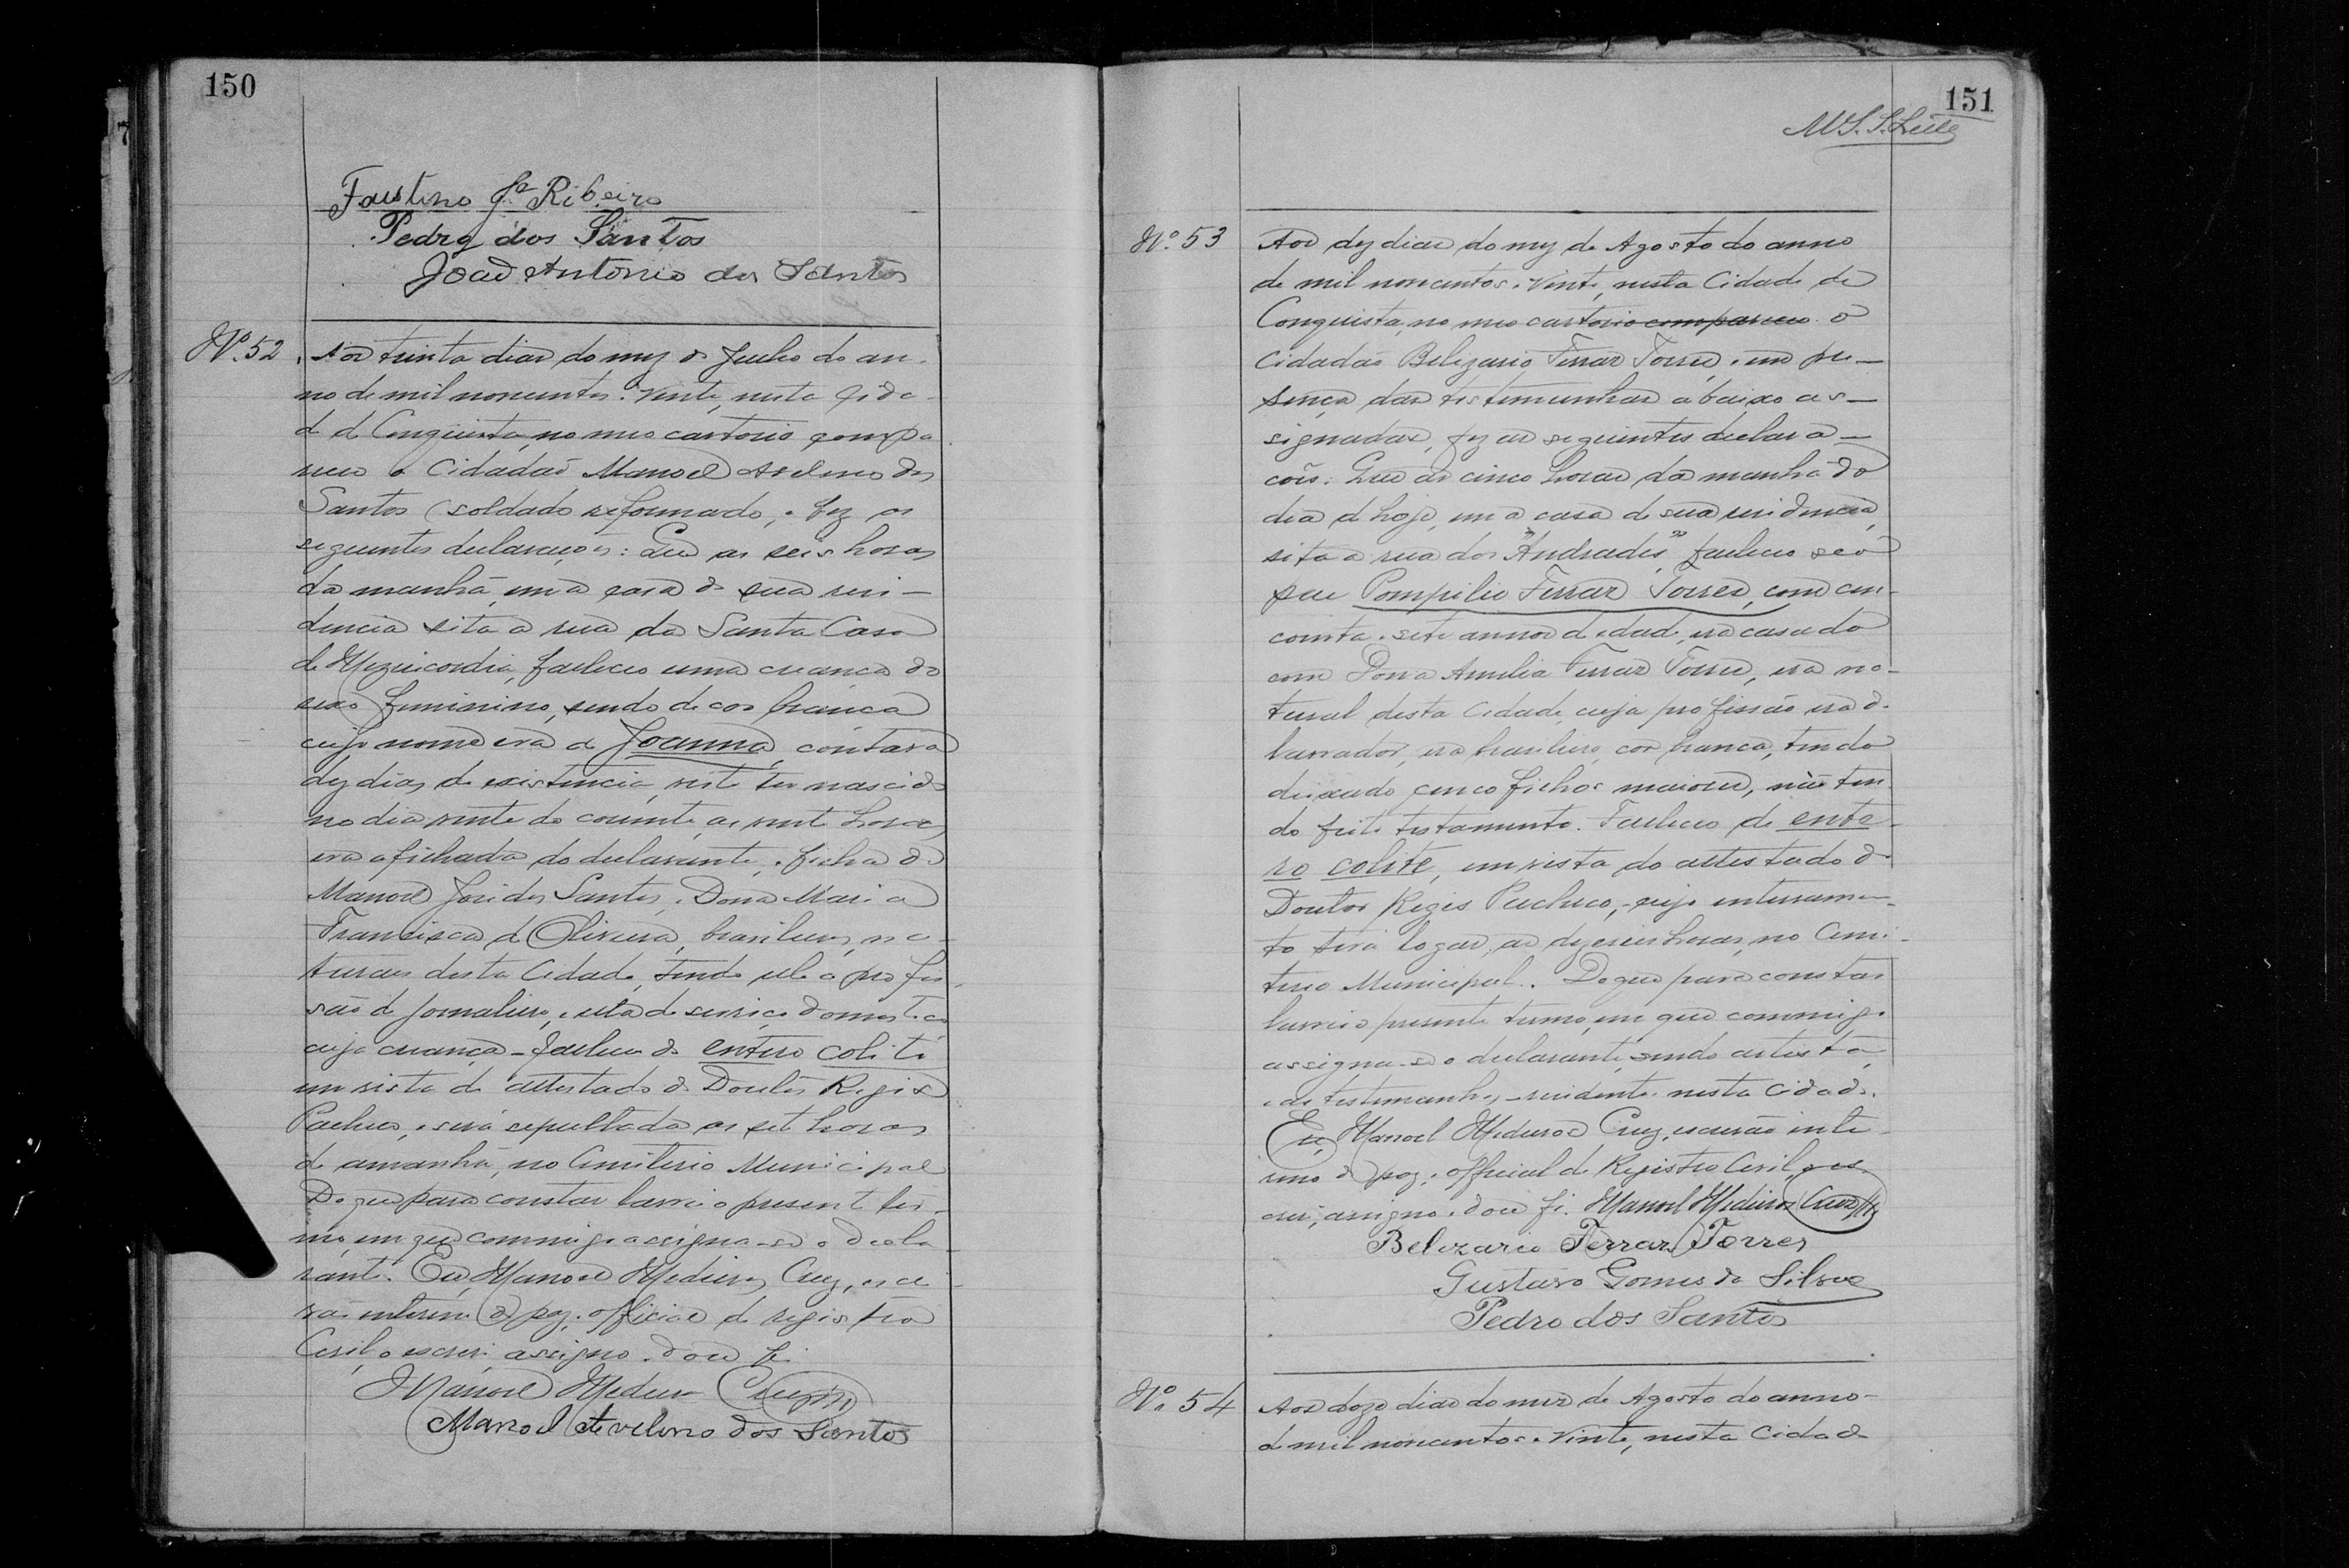 150
Faustino Ja Ribeiro
Pedro dos Santos
João Antonio dos Santos
Nº. 52
Aos trinta dias do mez de Julho do an-
no de mil novecentos e vinte, nesta cida-
de de Conquista, no meo cartorio compa-
receu o Cidadão Manoel Avelino dos
Santos (soldado reformado, e fez as
seguintes declarações: Que as seis horas
da manhã, em a casa de sua resi-
dencia sita a rua da Santa Casa
de Mizericordia, falleceu uma creança do
sexo feminino, sendo de cor branca
cujo nome era de Joanna, contava
dez dias de existencia, visto ter nascido
no dia vinte do corrente, as vinte horas,
era afilhada do declarante, e filha de
Manoel José dos Santos, e Dona Maria
Francisca de Oliveira, brasileiros, na-
turaes desta Cidade, sendo elle a profis-
são de jornaleiro, e ella de serviço domestico
cuja creança falleceu de entero colite
em vista do attestado do Doutor Regis
Pacheco, e será sepultada as sete horas
de amanhã, no Cemiterio Municipal
Do que para constar lavrei o presente ter-
mo, em que commigo assigna-se o decla-
rante. Eu, Manoel Medeiros Cruz, escri-
vão interino de paz, e official de registro
Civil, o escrevi, assigno e dou fé.
Manoel Medeiros Cruz
Manoel Avelino dos Santos
151
M S. S. Leite
Nº. 53
Aos dez dias do mez de Agosto do anno
de mil novecentos e vinte, nesta Cidade de
Conquista, no meo cartorio compareceu o
Cidadão Belizario Ferraz Torres, e em pre-
sença das testemunhas abaixo as-
signadas, fez as seguintes declara-
ções: Que as cinco horas da manhã do
dia de hoje, em a casa de sua residencia,
sita a rua dos "Andrades", falleceu seo
pae Pompilio Ferraz Torres, com cin-
coenta e sete annos de edade, era casado
com Dona Amelia Ferraz Torres, era na-
tural desta Cidade, cuja profissão era de
lavrador, era brasileiro, cor branca, tendo
deixado cinco filhos maiores, não ten-
do feito testamento. Falleceu de ente-
ro colite, em vista do attestado do
Doutor Regis Pacheco, cujo enterramen-
to terá logar, as dezeseis horas, no Cemi-
terio Municipal. Do que para constar
lavrei o presente termo, em que commigo
assigna-se o declarante, sendo artista,
e as testemunhas, residentes nesta Cidade.
Eu, Manoel Medeiros Cruz, escrivão inte-
rino de paz, e official do Registro Civil, o es-
crevi, assigno e dou fé. Manoel Medeiros Cruz
Belizario Ferraz Torres
Gustavo Gomes da Silva
Pedro dos Santos
Nº. 54
Aos doze dias do mez de Agosto do anno
de mil novecentos e vinte, nesta Cidade